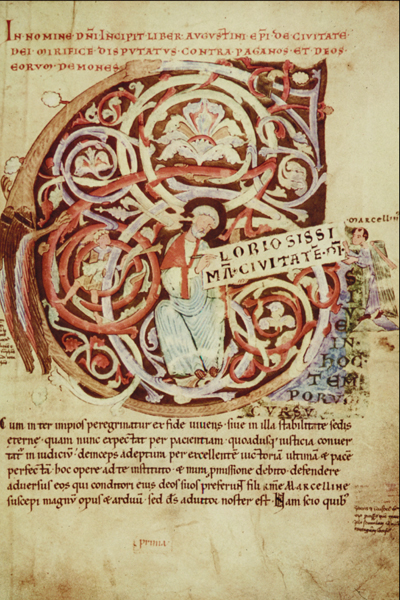 IN NOMINE DÑI INCIPIT LIBER AUGUSTINI EP̄I DE CIVITATE
DEI MIRIFICE DISPUTATUS CONTRA PAGANOS ET DEOS
EORUM DEMONES
MARCELLIN
LORIOSISSI
MĀ CIVITATĒ DĪ
SI
VE IN
HOC
TEM
PORU
CURSU
Cum inter impios peregrinatur ex fide vivens· sive in illa stabilitate sedis
eterne· quam nunc expectat per pacientiam· quoadusq; iusticia conver
tatur in iudiciū· deinceps adeptum per excellentiā victoriā ultimā & pacē
perfectā· hoc opere ad te instituto· & mea p̄missione debito· defendere
adversus eos qui conditori eius deos suos preferunt· fili k̄me Marcelline
suscepi magnū opus & arduū· sed dš adiutor noster est· Nam scio quib'
prima